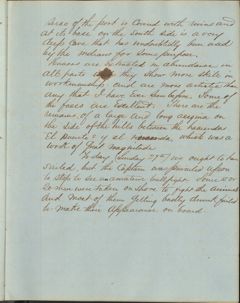 of the port is covered with ruins and
at its base on the South side is a very
deep Cave that has undoubtedly been used
by the indians for some purpose.
are in abundance in
all parts they show more skill in
workmanship and are more than
any that I have seen Some of
the faces are Excellent. There are the
remains of a large and long
on the side of the hills between the
El y el which was a
work of great magnitude
Today (Sunday 27th) we ought to have
sailed, but the Captain was upon
to stop to see an amateur bullfight. Some
men were taken on shore to fight the animals
and most of them getting badly drunk failed
to make their appearance on board.